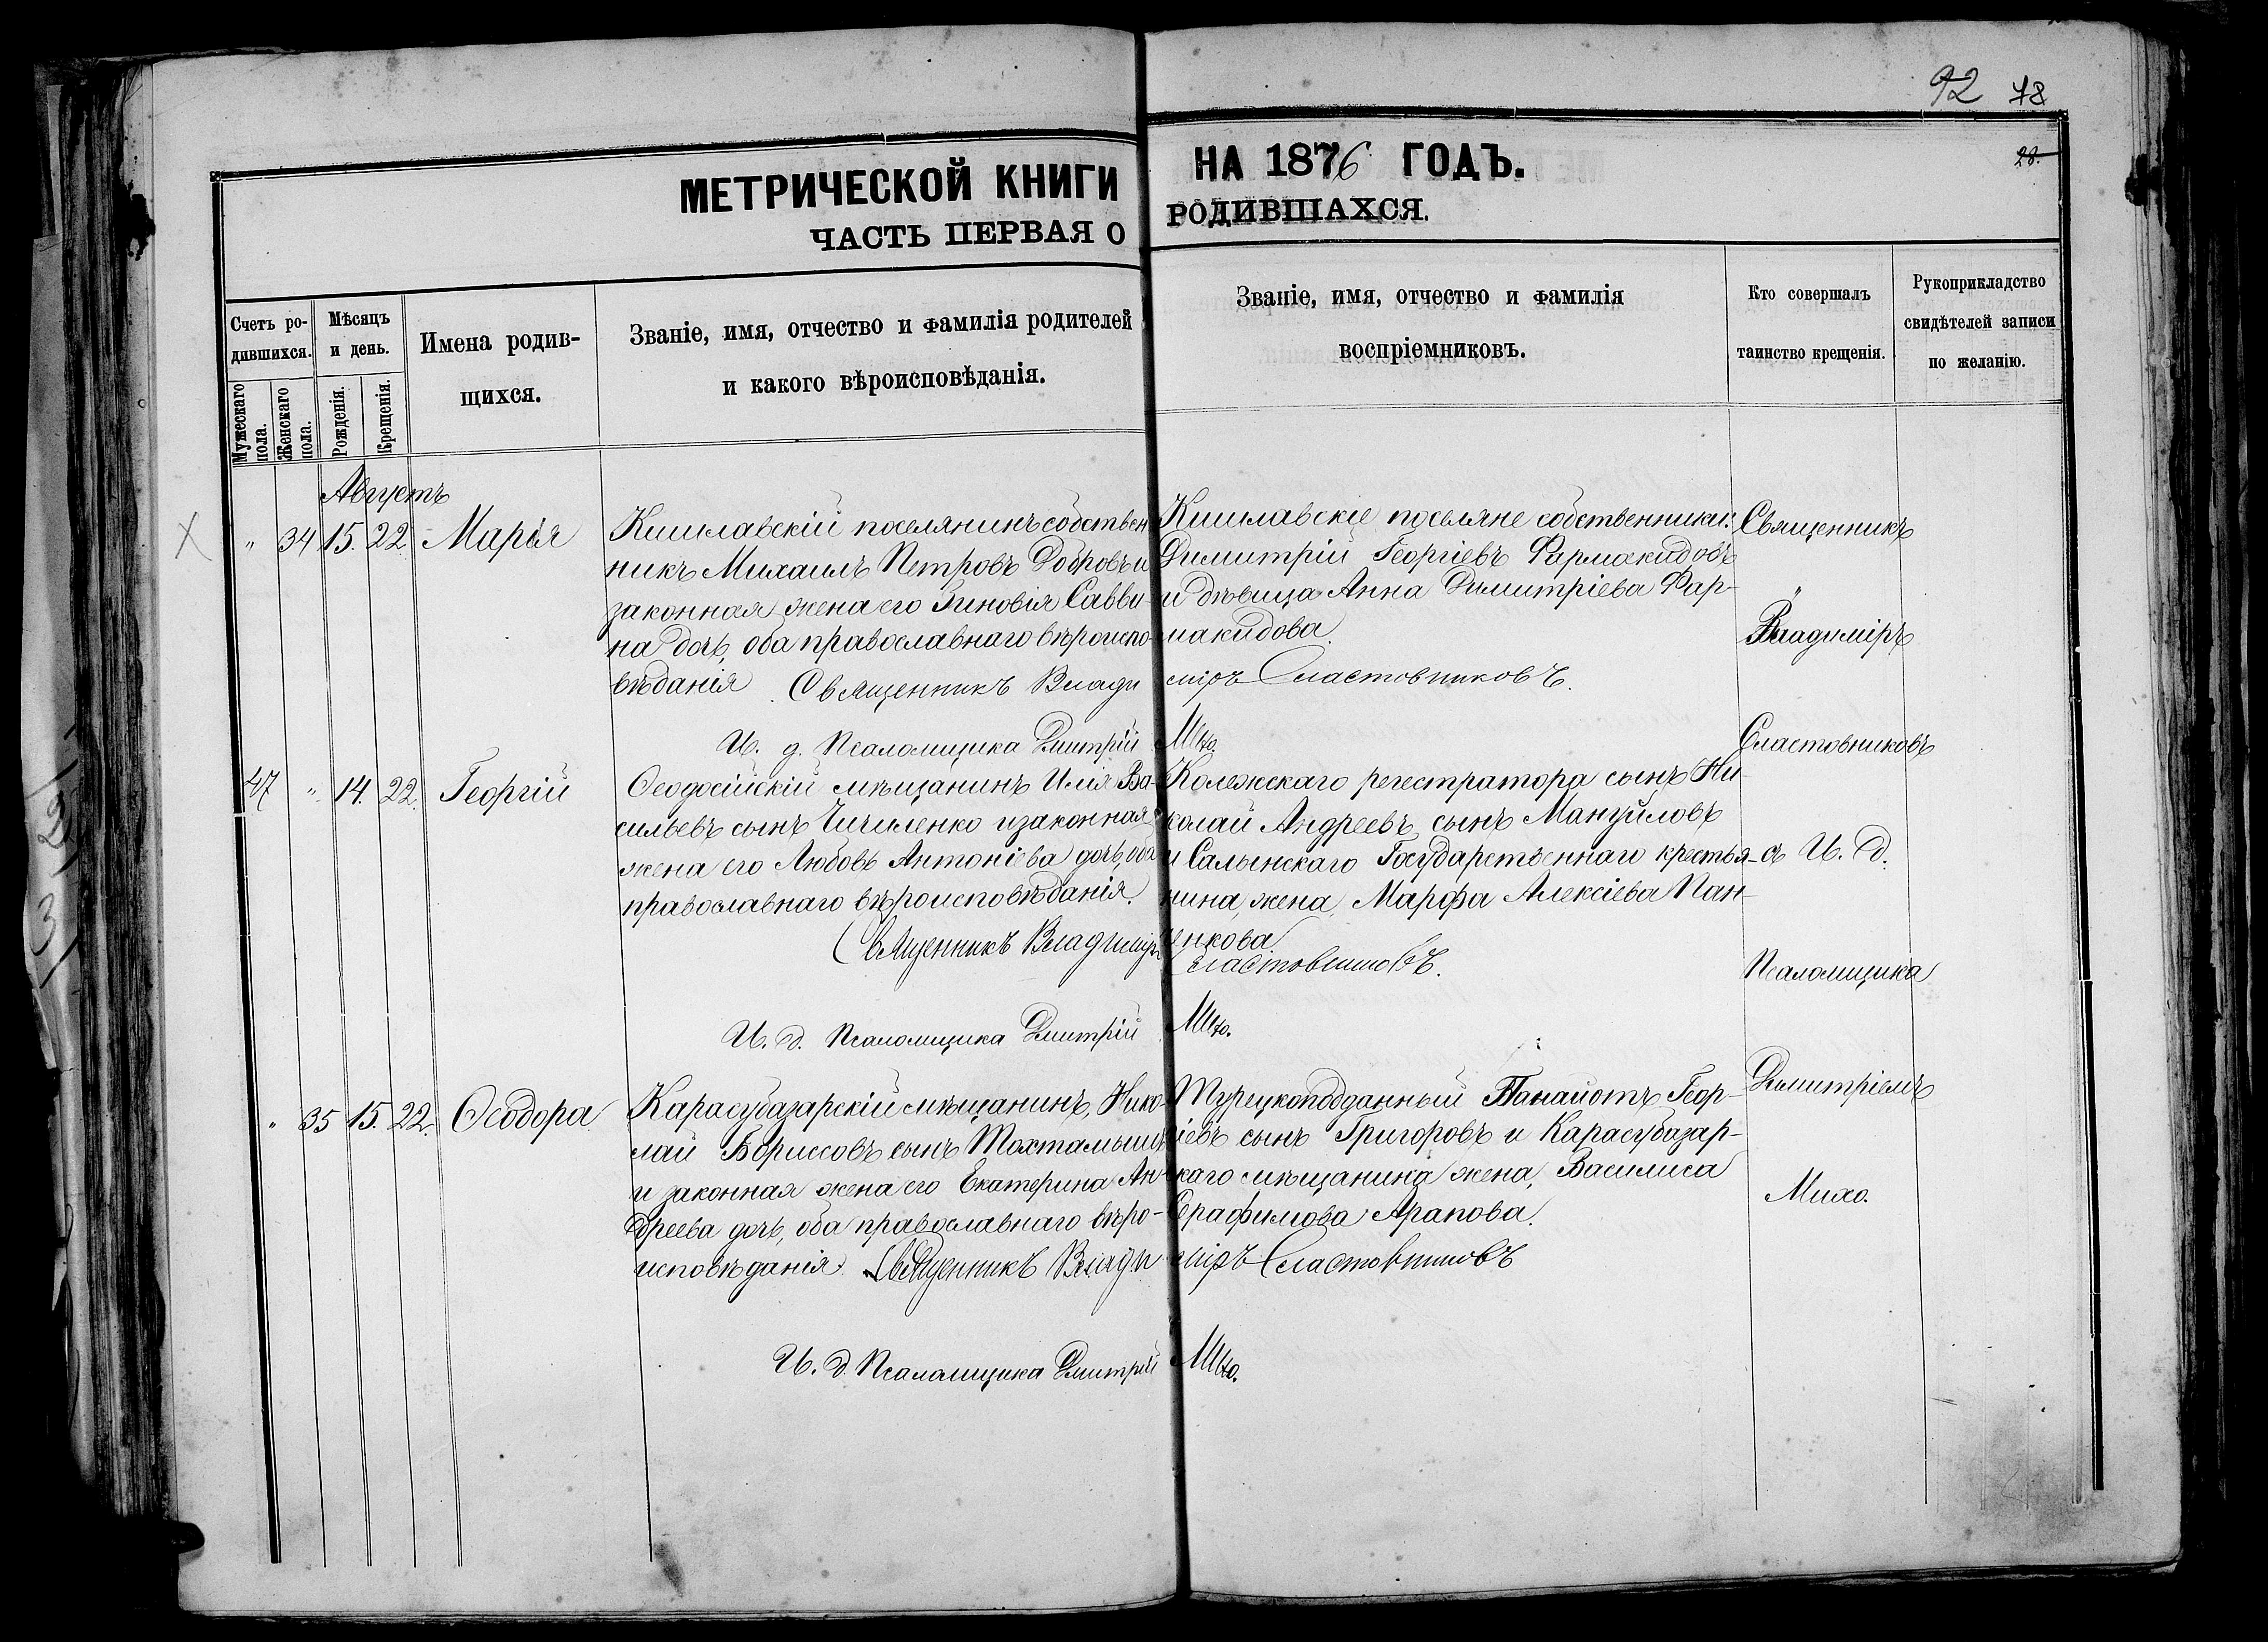 92 78
28.
МЕТРИЧЕСКОЙ КНИГИ НА 1876 ГОДЪ.
ЧАСТЬ ПЕРВАЯ О РОДИВШАХСЯ.
Счетъ ро-
дившихся.
Мужескаго пола.
Женскаго пола.
Мѣсяцъ
и день.
Рожденія.
Крещенія.
Имена родив-
щихся.
Званіе, имя, отчество и фамилія родителей
и какого вѣроисповѣданія.
Званіе, имя, отчество и фамилія
воспріемниковъ.
Кто совершалъ
таинство крещенія.
Рукоприкладство
свидѣтелей записи
по желанію.
Августъ
" 34 15. 22 Марія
Кишлавскій поселянинъ собствен
никъ Михаилъ Петровъ Добровъ и
законная жена его Зиновія Савви-
на дочь, оба православнаго вѣроиспо-
вѣданія. Священникъ Влади
И. д. Псаломщика Дмитрій
Кишлавскіе поселяне собственники:
Димитрій Георгіевъ Фармакидовъ
и дѣвица Анна Димитріева Фар-
макидова.
міръ Сластовниковъ.
Михо.
47 " 14. 22. Георгій
Ѳеодосійскій мѣщанинъ Илія Ва-
сильевъ сынъ Чичиленко и законная
жена его Любовь Антоніева дочь, оба
православнаго вѣроисповѣданія.
Священникъ Владиміръ
И. д. Псаломщика Дмитрій
Колежскаго регестратора сынъ Ни-
колай Андреевъ сынъ Мануйловъ
и Салынскаго Государственнаго крестья-
нина, жена, Марфа Алексіева Пан-
ченкова.
Сластовниковъ.
Михо.
" 35 15. 22. Ѳеодора
Карасубазарскій мѣщанинъ, Нико-
лай Бориссовъ сынъ Тохтамышъ
и законная жена его Екатерина Ан-
дреева дочь, оба православнаго вѣро-
исповѣданія. Священникъ Влади
И. д. Псаломщика Дмитрій
Турецкоподданный Панайотъ Геор-
гіевъ сынъ Григоровъ и Карасубазар-
скаго мѣщанина жена, Василиса
Серафимова Арапова.
міръ Сластовниковъ
Михо.
Священникъ
"
Владиміръ
Сластовниковъ
съ И. д.
Псаломщика
Димитріемъ
Михо.